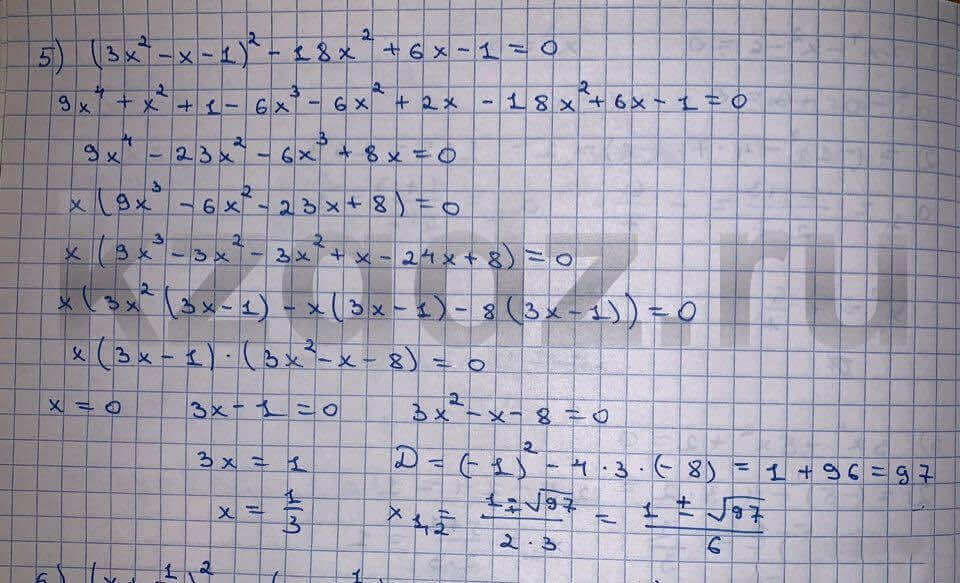 5) (3x² - x - 1)² - 18x² + 6x - 1 = 0
9x⁴ + x² + 1 - 6x³ - 6x² + 2x - 18x² + 6x - 1 = 0
9x⁴ - 23x² - 6x³ + 8x = 0
x(9x³ - 6x² - 23x + 8) = 0
x(9x³ - 3x² - 3x² + x - 24x + 8) = 0
x(3x²(3x - 1) - x(3x - 1) - 8(3x - 1)) = 0
x(3x - 1) · (3x² - x - 8) = 0
x = 0 3x - 1 = 0 3x² - x - 8 = 0
3x = 1 D = (-1)² - 4 · 3 · (-8) = 1 + 96 = 97
x = 1/3 x₁,₂ = (1 ± √97)/(2 · 3) = (1 ± √97)/6
kzgdz.ru